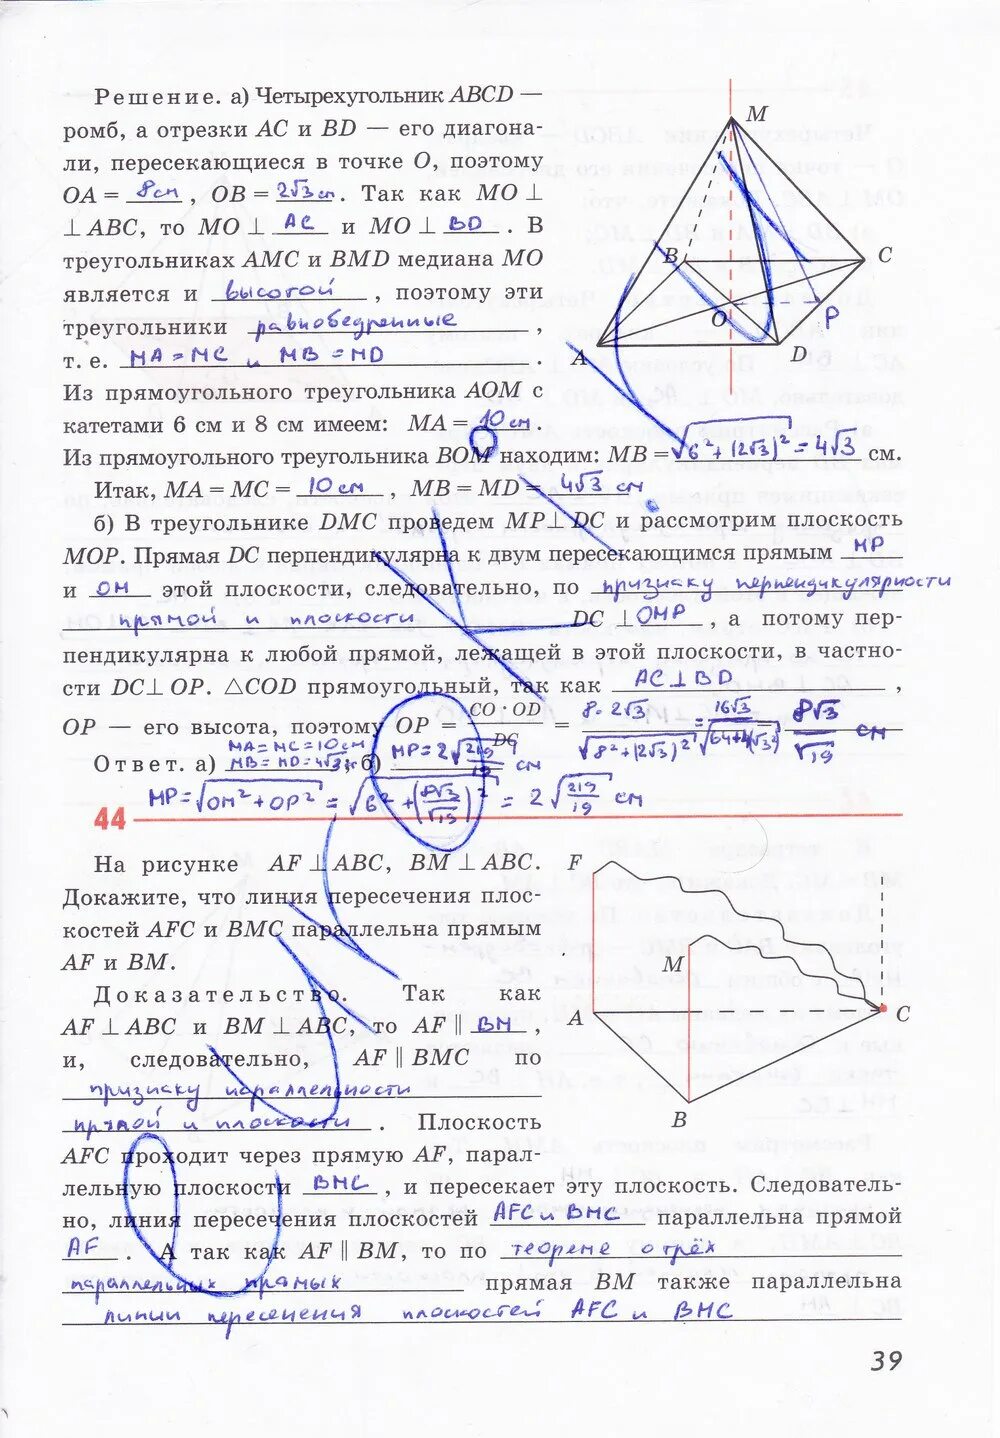 Решение. а) Четырехугольник ABCD —
ромб, а отрезки AC и BD — его диагона-
ли, пересекающиеся в точке O, поэтому
OA = 8 см , OB = 2√3 см. Так как MO ⊥
⊥ ABC, то MO ⊥ AC и MO ⊥ BD . В
треугольниках AMC и BMD медиана MO
является и высотой , поэтому эти
треугольники равнобедренные ,
т. е. MA = MC и MB = MD .
Из прямоугольного треугольника AOM с
катетами 6 см и 8 см имеем: MA = 10 см .
Из прямоугольного треугольника BOM находим: MB = √6² + (2√3)² = 4√3 см.
Итак, MA = MC = 10 см , MB = MD = 4√3 см
б) В треугольнике DMC проведем MP ⊥ DC и рассмотрим плоскость
MOP. Прямая DC перпендикулярна к двум пересекающимся прямым MP
и OM этой плоскости, следовательно, по признаку перпендикулярности
прямой и плоскости DC ⊥ OMP , а потому пер-
пендикулярна к любой прямой, лежащей в этой плоскости, в частно-
сти DC ⊥ OP. △COD прямоугольный, так как AC ⊥ BD ,
OP — его высота, поэтому OP = CO · OD / DC = 8 · 2√3 / √8² + (2√3)² = 16√3 / √64+4(√3²) = 8√3 / √19 см
Ответ. а) MA = MC = 10 см MB = MD = 4√3 см; б) MP = 2√219/19 см
MP = √OM² + OP² = √6² + (8√3/√19)² = 2√219/19 см
44
На рисунке AF ⊥ ABC, BM ⊥ ABC.
Докажите, что линия пересечения плос-
костей AFC и BMC параллельна прямым
AF и BM.
Доказательство. Так как
AF ⊥ ABC и BM ⊥ ABC, то AF ∥ BM ,
и, следовательно, AF ∥ BMC по
признаку параллельности
прямой и плоскости . Плоскость
AFC проходит через прямую AF, парал-
лельную плоскости BMC , и пересекает эту плоскость. Следователь-
но, линия пересечения плоскостей AFC и BMC параллельна прямой
AF . А так как AF ∥ BM, то по теореме о трёх
параллельных прямых прямая BM также параллельна
линии пересечения плоскостей AFC и BMC
39
M
B
C
O
P
A
D
F
M
A
C
B